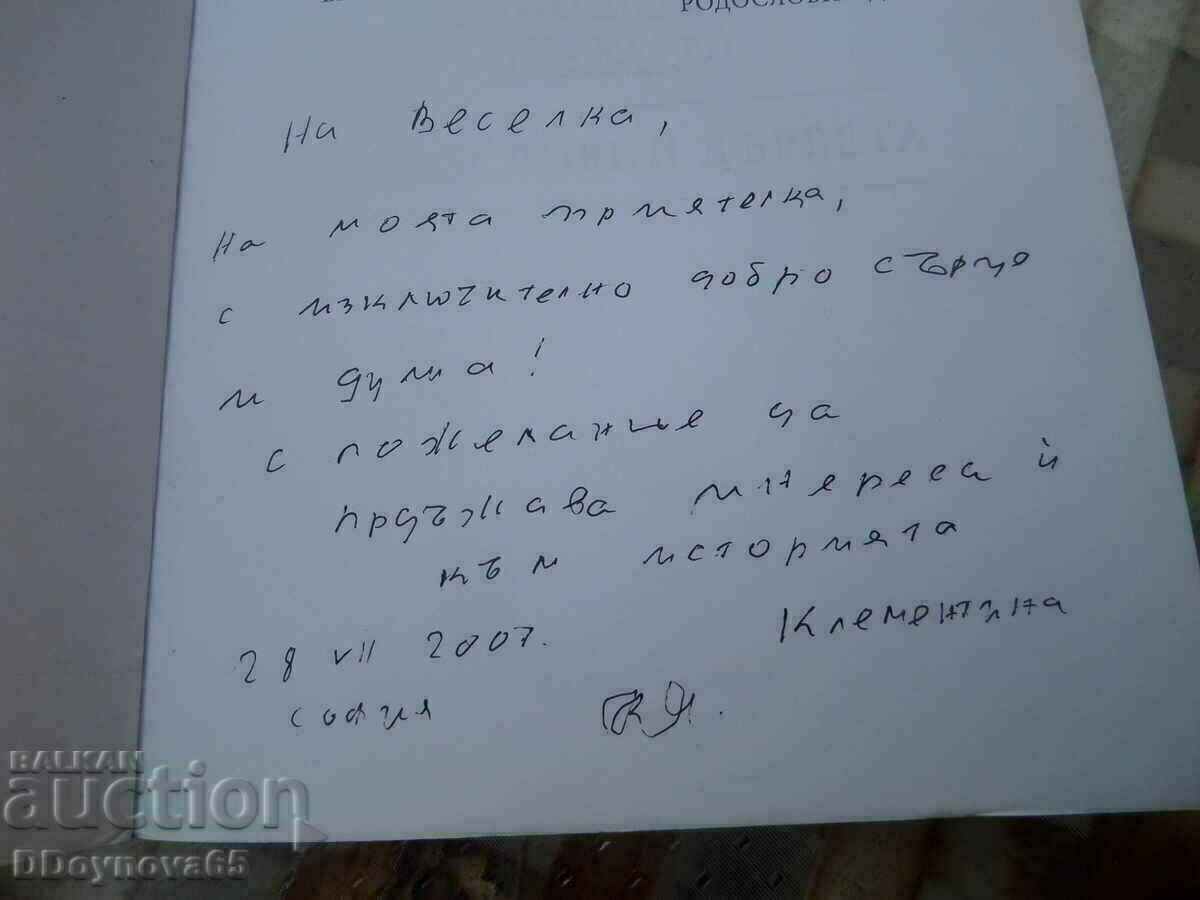 На Веселка,
на моята приятелка,
с изключително добро сърце
и душа!
с пожелание да
продължава интереса ѝ
към историята
Клементина
28 VII 2007.
София
BALKAN
auction
DDoynova65